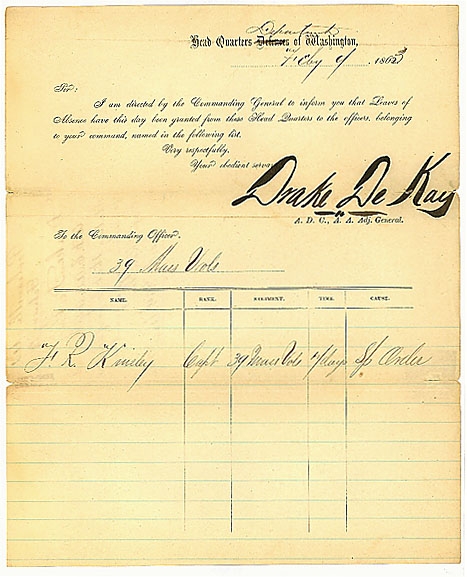 Department
Head Quarters Defences of Washington,
Feby 9 1863
Sir:
I am directed by the Commanding General to inform you that Leaves of
Absence have this day been granted from these Head Quarters to the officers, belonging
to your command, named in the following list.
Very respectfully,
Your obedient servant
Drake De Kay
A. D. C., A. A. Adj. General.
To the Commanding Officer.
39 Mass Vols
NAME. RANK. REGIMENT. TIME. CAUSE.
F. R. Kinsley Capt 39 Mass Vols days Sp Order